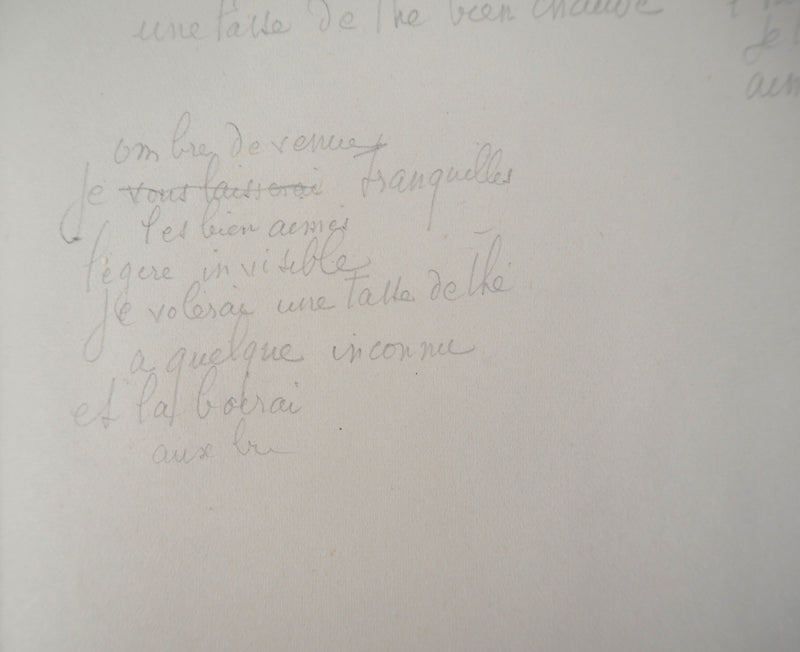 une tasse de thé bien chaude
je
ombre devenue
Je vous laisserai tranquilles
les bien aimés
légère invisible
Je volerai une tasse de thé
a quelque inconnu
et la boirai
aux